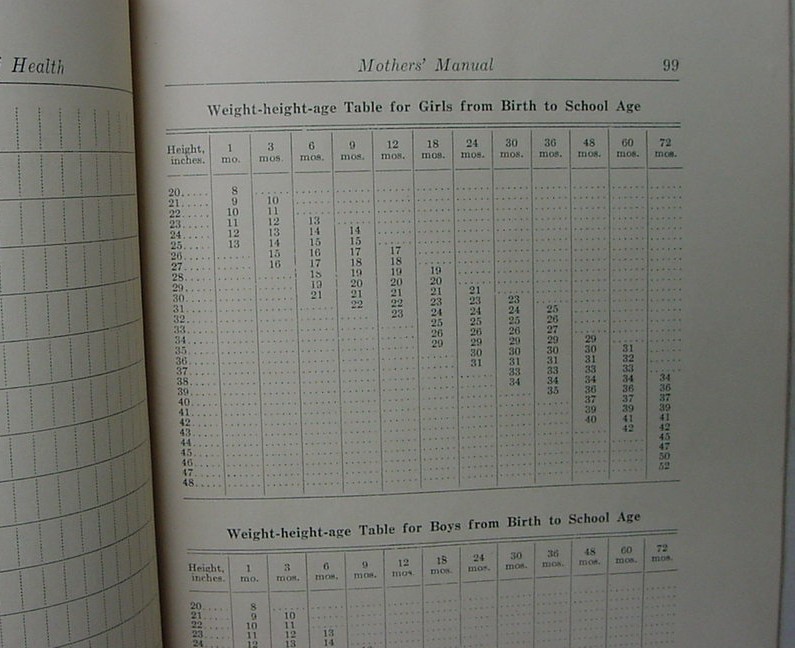 f Health
Mothers' Manual 99
Weight-height-age Table for Girls from Birth to School Age
Height, inches. 1 mo. 3 mos. 6 mos. 9 mos. 12 mos. 18 mos. 24 mos. 30 mos. 36 mos. 48 mos. 60 mos. 72 mos.
20 8
21 9 10
22 10 11
23 11 12 13
24 12 13 14 14
25 13 14 15 15
26 15 16 17 17
27 16 17 18 18
28 18 19 19 19
29 19 20 20 20
30 21 21 21 21 21
31 22 22 23 23 23
32 23 24 24 24 25
33 25 25 25 26
34 26 26 26 27
35 29 29 29 29 29
36 30 30 30 30 31
37 31 31 31 31 32
38 33 33 33 33
39 34 34 34 34 34
40 35 36 36 36
41 37 37 37
42 39 39 39
43 40 41 41
44 42 42
45 45
46 47
47 50
48 52
Weight-height-age Table for Boys from Birth to School Age
Height, inches. 1 mo. 3 mos. 6 mos. 9 mos. 12 mos. 18 mos. 24 mos. 30 mos. 36 mos. 48 mos. 60 mos. 72 mos.
20 8
21 9 10
22 10 11
23 11 12 13
24 12 13 14